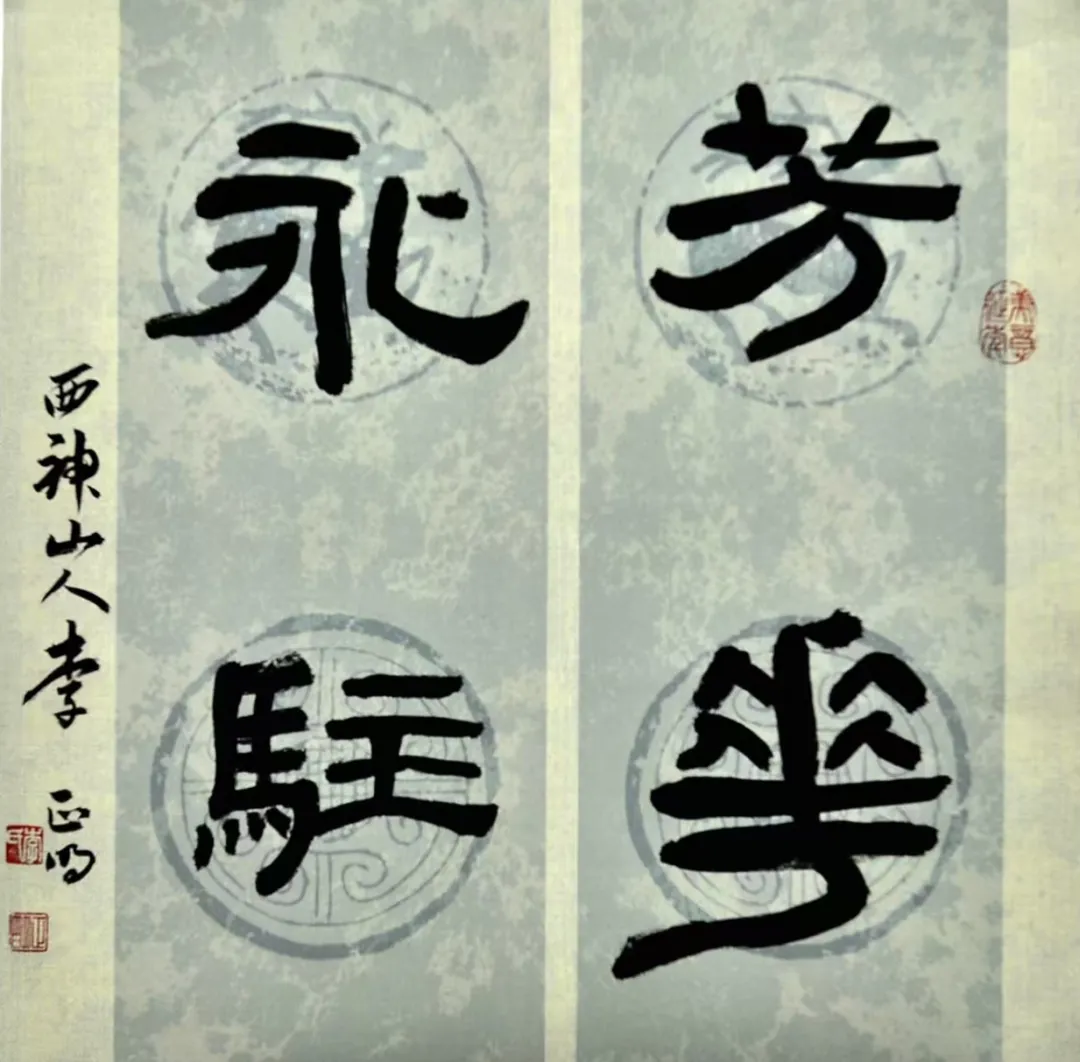 芳華
永駐
西神山人李正鸣